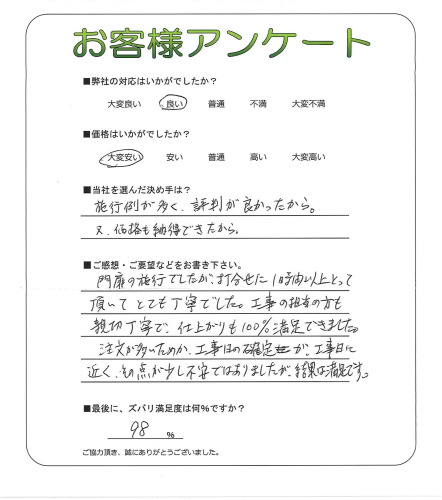 お客様アンケート
■弊社の対応はいかがでしたか?
大変良い 良い 普通 不満 大変不満
■価格はいかがでしたか?
大変安い 安い 普通 高い 大変高い
■当社を選んだ決め手は?
施行例が多く、評判が良かったから。
又、価格も納得できたから。
■ご感想・ご要望などをお書き下さい。
門扉の施行でしたが、打合せに1時間以上とって
頂いてとても丁寧でした。工事の担当の方も
親切丁寧で、仕上がりも100%満足できました。
注文が多いためか、工事日の確定が、工事日に
近く、その点が少し不安ではありましたが、結果は満足です。
■最後に、ズバリ満足度は何%ですか?
98 %
ご協力頂き、誠にありがとうございました。